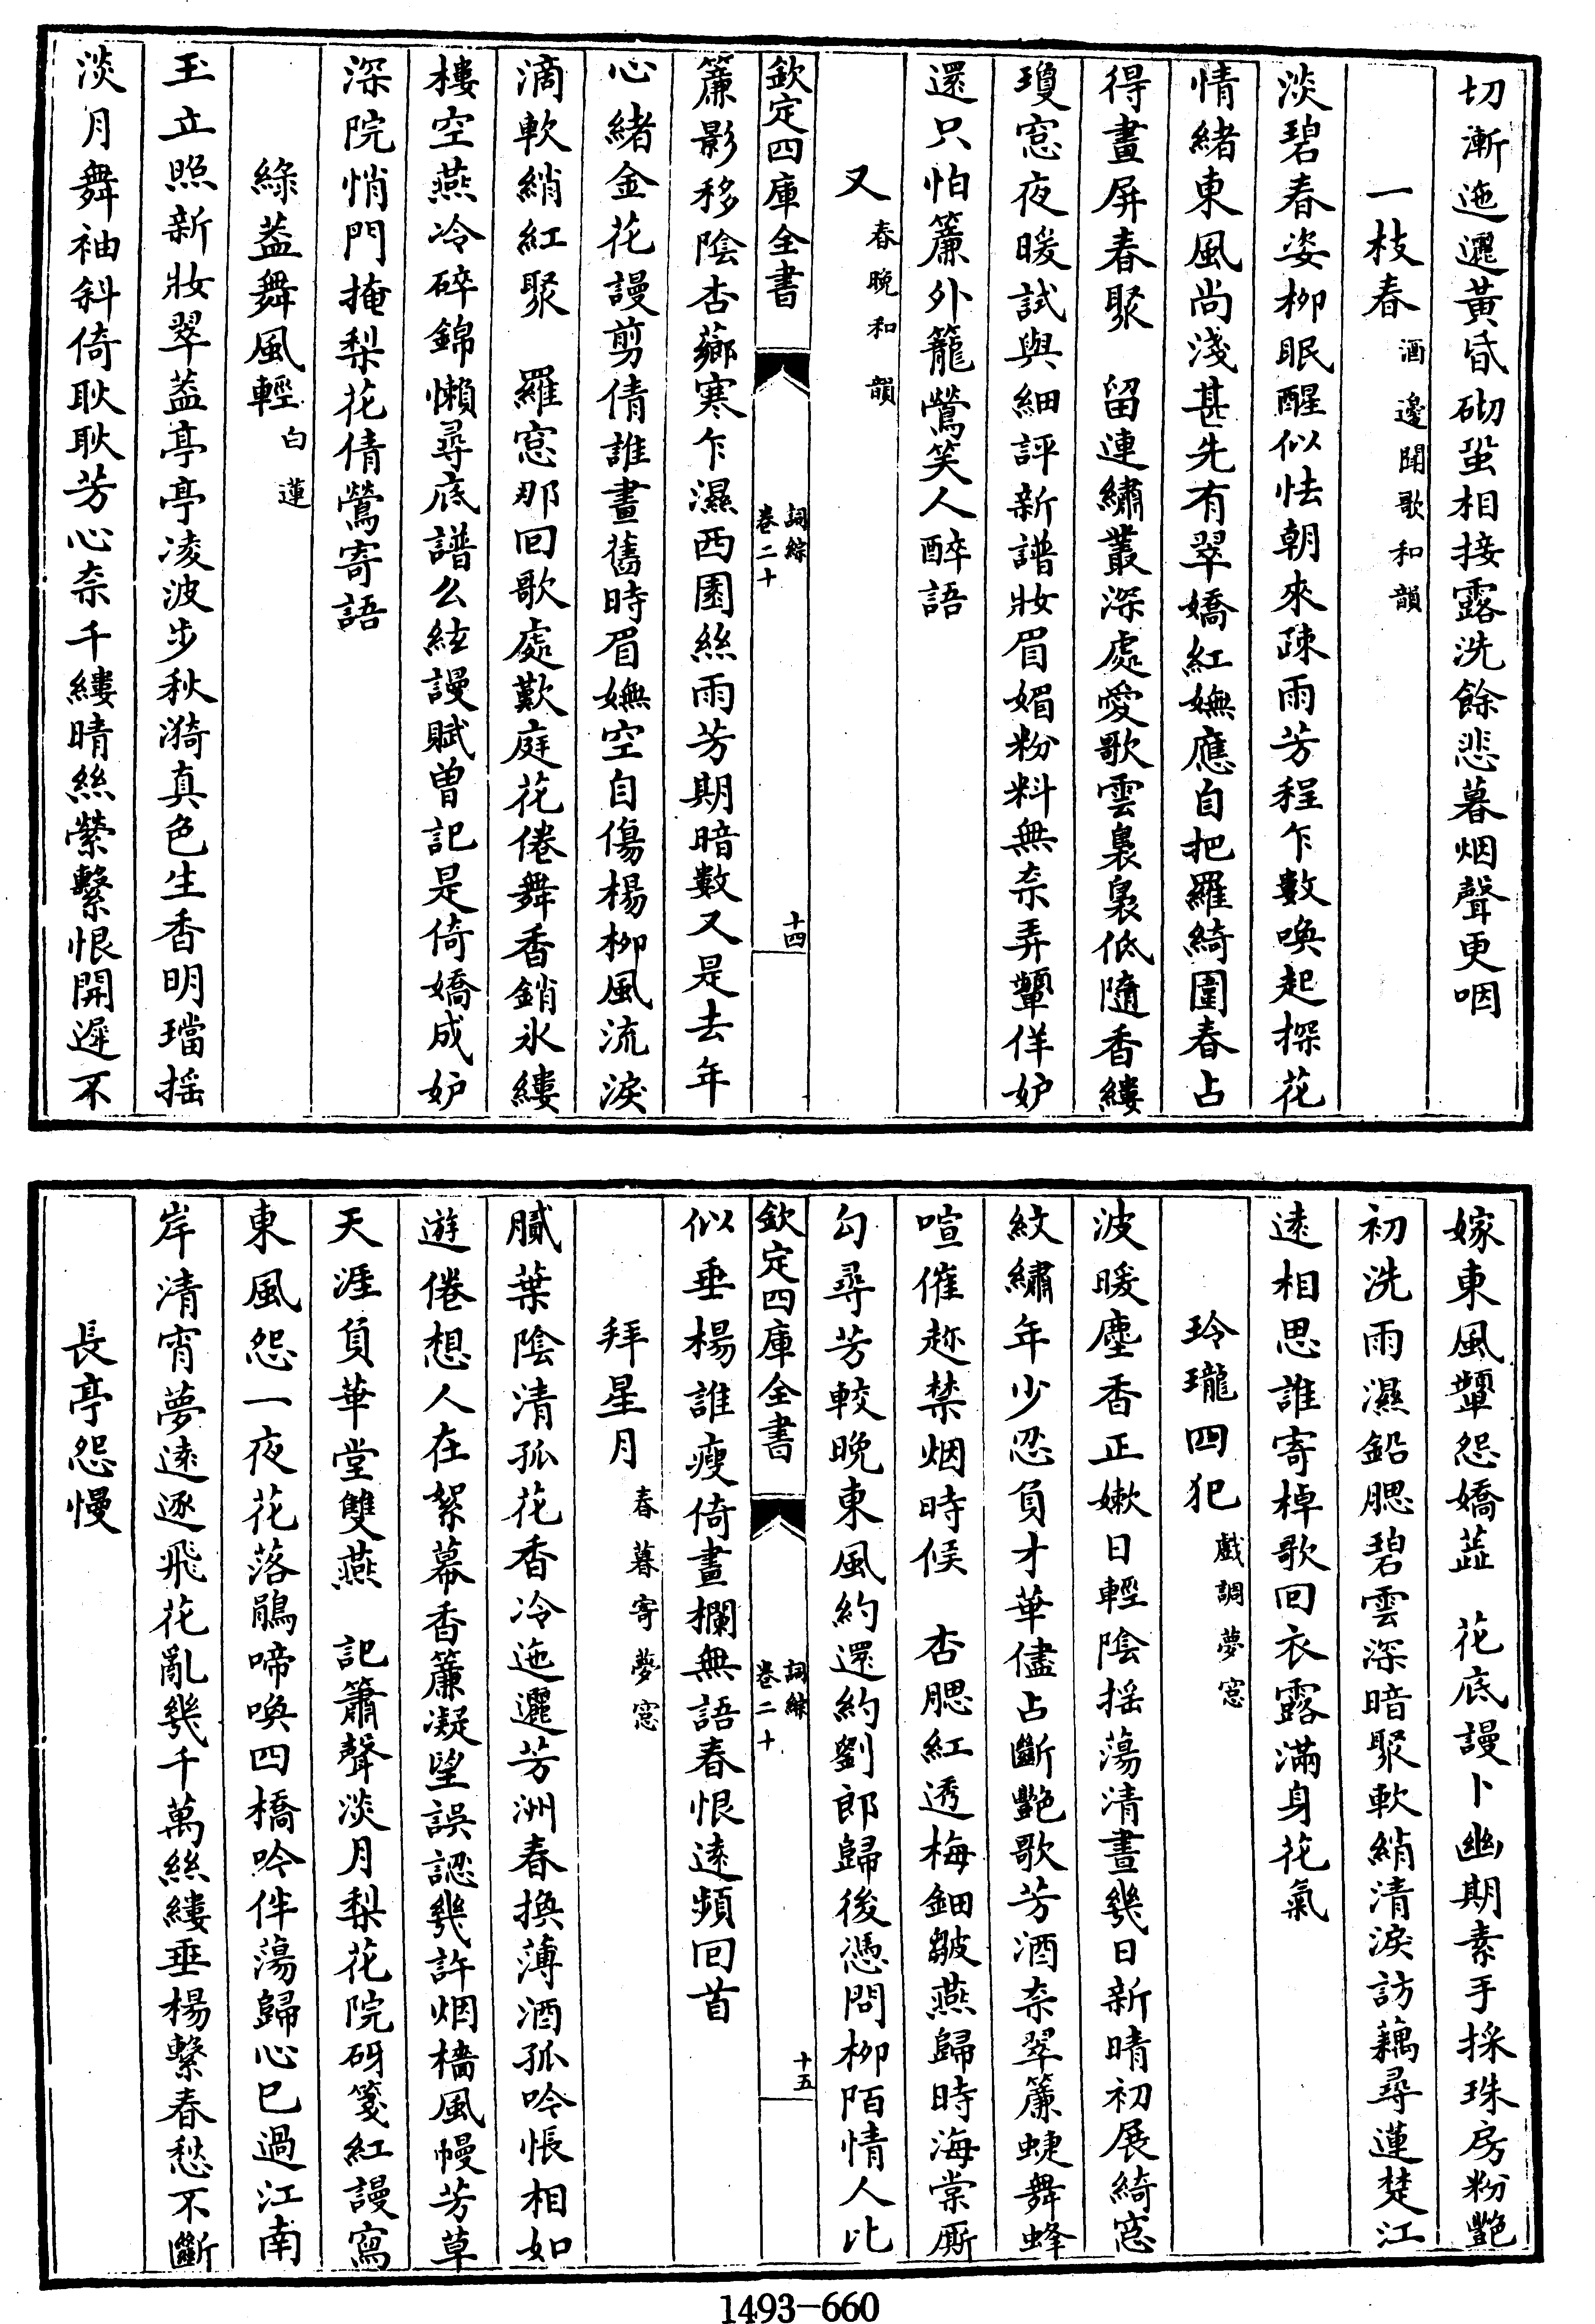 切漸迤邐黃昏砌蛩相接露洗餘悲暮烟聲更咽
一枝春 酒邊聞歌和韻
淡碧春姿柳眠醒似怯朝來疎雨芳程乍數喚起探花
情緒東風尚淺甚先有翠嬌紅嫵應自把羅綺圍春占
得畫屏春聚 留連繡叢深處愛歌雲裊裊低隨香縷
瓊窓夜暖試與細評新譜妝眉媚粉料無柰弄顰佯妒
還只怕簾外籠鶯笑人醉語
又 春晚和韻
欽定四庫全書 詞綜 卷二十 十四
簾影移陰杏薌寒乍濕西園絲雨芳期暗數又是去年
心緒金花謾剪倩誰畫舊時眉嫵空自傷楊柳風流淚
滴軟綃紅聚 羅窓那回歌處歎庭花倦舞香銷氷縷
樓空燕冷碎錦懶尋底譜么絃謾賦曾記是倚嬌成妒
深院悄門掩梨花倩鶯寄語
綠葢舞風輕 白蓮
玉立照新妝翠葢亭亭凌波步秋漪真色生香明璫搖
淡月舞袖斜倚耿耿芳心柰千縷晴絲縈繫恨開遲不
嫁東風顰怨嬌蕋 花底謾卜幽期素手採珠房粉艷
初洗雨濕鉛腮碧雲深暗聚軟綃清淚訪藕尋蓮楚江
逺相思誰寄棹歌回衣露滿身花氣
玲瓏四犯 戲調夢窓
波暖塵香正嫩日輕陰揺蕩清晝幾日新晴初展綺窓
紋繡年少忍負才華儘占斷艷歌芳酒柰翠簾蜨舞蜂
喧催趂禁烟時候 杏腮紅透梅鈿皺燕歸時海棠厮
勾尋芳較晚東風約還約劉郎歸後憑問柳陌情人比
欽定四庫全書 詞綜 卷二十 十五
似垂楊誰瘦倚畫欄無語春恨逺頻回首
拜星月 春暮寄夢窓
膩葉陰清孤花香冷迤邐芳洲春換薄酒孤吟悵相如
遊倦想人在絮幕香簾凝望誤認幾許烟檣風幔芳草
天涯負華堂雙燕 記簫聲淡月梨花院砑箋紅謾寫
東風怨一夜花落鵑啼喚四橋吟伴蕩歸心已過江南
岸清宵夢逺逐飛花亂幾千萬絲縷垂楊繫春愁不斷
長亭怨慢
1493-660